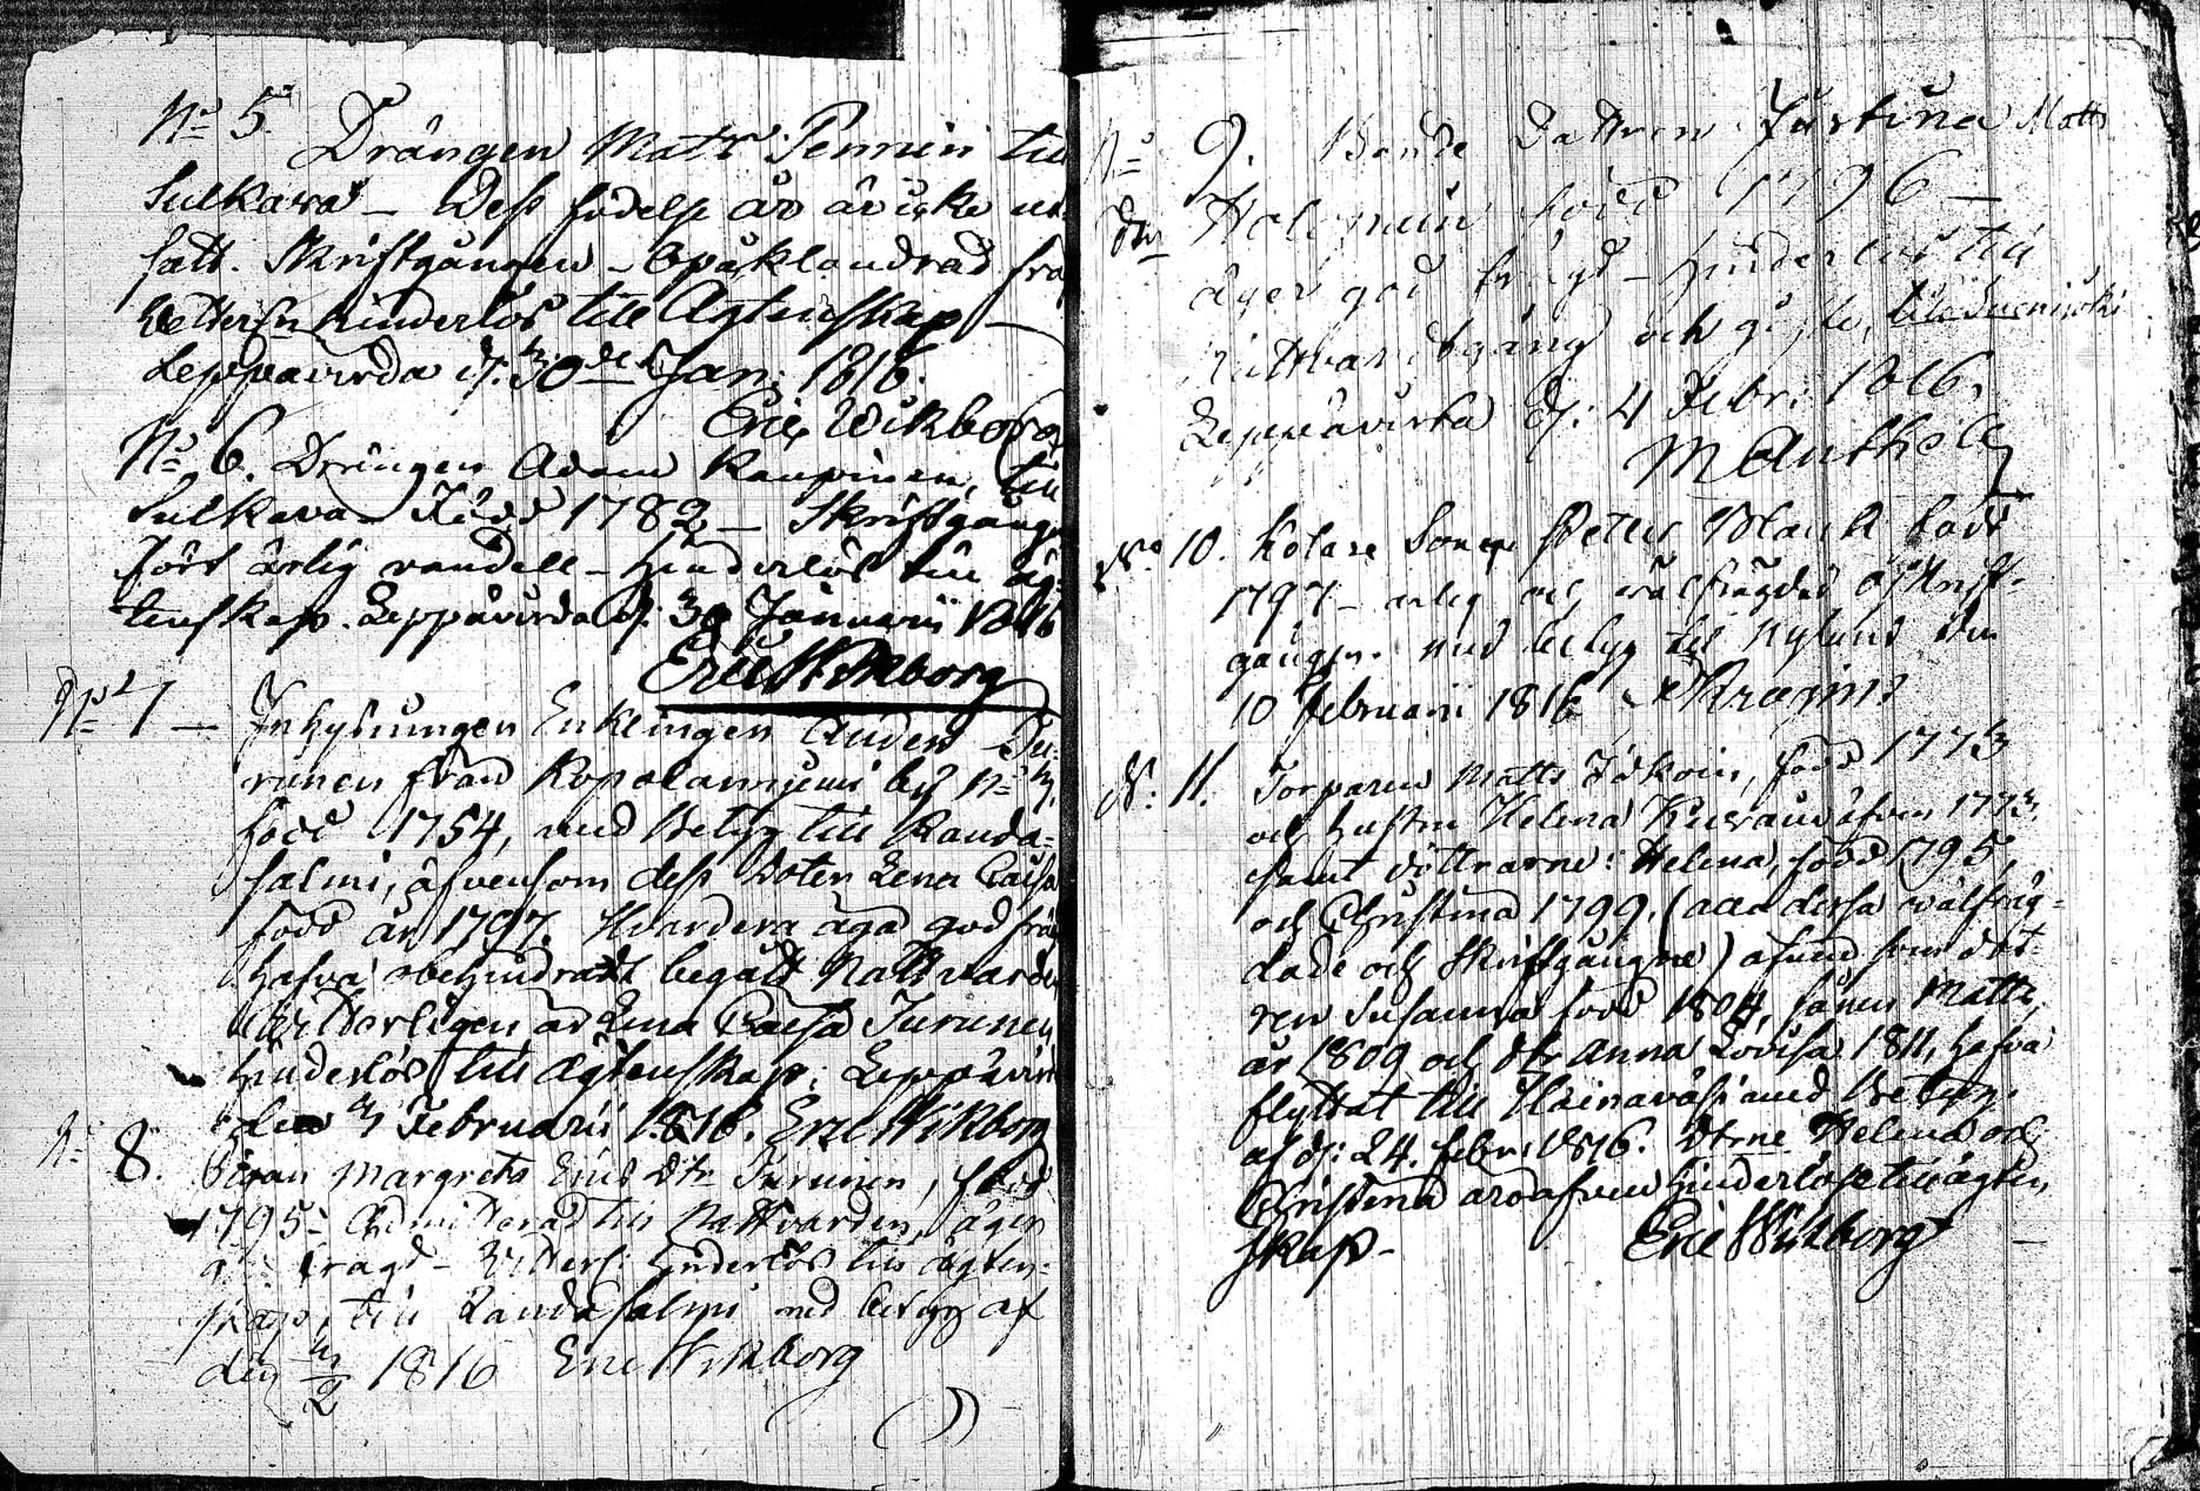 No 5.
Drängen Matts Pennin till
Sulkava – Dess födelse år är icke ut-
satt. Skriftgången – Opåklandrad frä
Vetterl. hinderlös till Ägtenskap –
Leppävirda d. 30de Jan. 1816.
Eric Wikborg
No 6. Drängen Adam Kaupinen, till
Sulkava – Född 1782 – Skriftgången
fört ärlig vandell – Hinderlös till äg-
tenskap. Leppävirda d. 30 Januarii 1816
Eric Wikborg
No 7 – Inhysningen Enklingen Anders Tu-
runen från Kopolanniemi by No 3,
född 1754, med Betyg till Randa-
salmi, äfvensom dess Doter Lena Caisa
född år 1797. Hvardera äga god fräg
hafva obehindradt begått Nattvarden
Vetterligen är Lena Caisa Turunen
hinderlös till Ägtenskap; Leppävird
den 3 Februarii 1816. Eric Wikborg
No 8. Pigan Margreta Erics Dtr Turunen, född
1795 – Admitterad till Nattvarden, äger
frägd – Vetterl. hinderlös till ägten-
skap, till Randasalmi med betyg af
den 3/2 1816 Eric Wikborg
No 9. Bonde Dottren Justina Matts
dtr Holopain född 1796 –
äger god frägd – hinderlös till
Nattvardsgång och gifte,
Leppävirta d. 4 Febr. 1816.
M Anthell
No 10. Kolare Sonen Peter Blank född
1797 – ärlig och välfrägdad o skrift-
gången. med betyg till Nylund den
10 februarii 1816
No 11. Torparen Matts Jäkoin, född 1773
och hustru Helena Kuerain äfven 1773,
samt döttrarne: Helena, född 1795,
och Christina 1799. (alla dessa välfräg-
dade och skriftgångne) äfven som dott-
ren Susanna född 1804, sonen Matts,
år 1809 och dtr Anna Lovisa 1811, hafva
flyttat till Heinaväsi med Betyg
af d. 24. febr. 1816. Dtrne Helena och
Christina äro äfven hinderlöse till ägten
skap –
Eric Wikborg